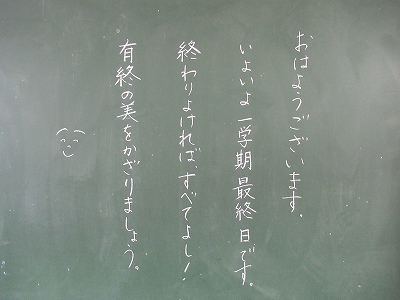 おはようございます。
いよいよ一学期最終日です。
終わりよければ、すべてよし!
有終の美をかざりましょう。